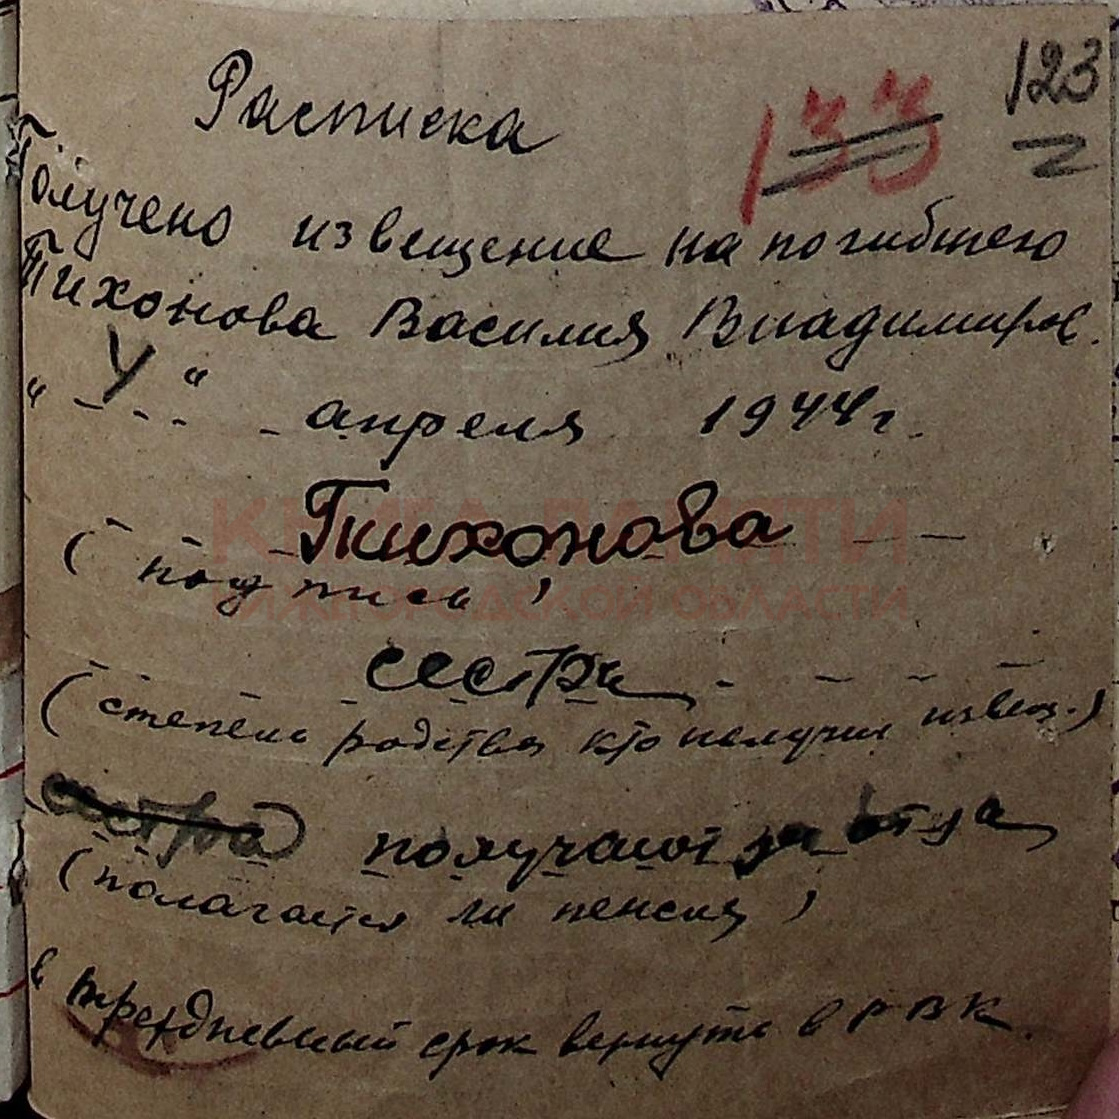 123
133
Расписка
Получено извещение на погибшего
Тихонова Василия Владимиров.
" У " апреля 1944 г.
Тихонова
(подпись)
КНИГА ПАМЯТИ
НИЖЕГОРОДСКОЙ ОБЛАСТИ
сестра
(степень родства кто получил извещ.)
сестра получают за отца
(полагается ли пенсия)
в трехдневный срок вернуть в РВК.